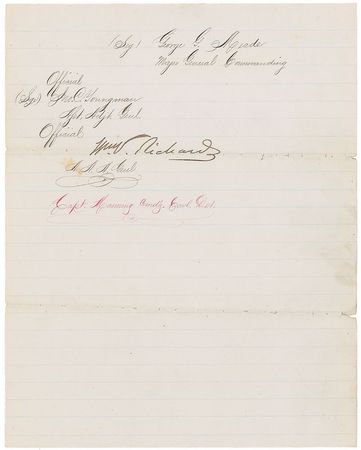 (Sg) George G. Meade
Major General Commanding
Official
(Sgd) Jno. C. Youngman
Apt. Adjt. Genl.
Official
Wm. V. Richards
A. A. A. Genl
Capt. Manning Comdg. Cavl. Det.